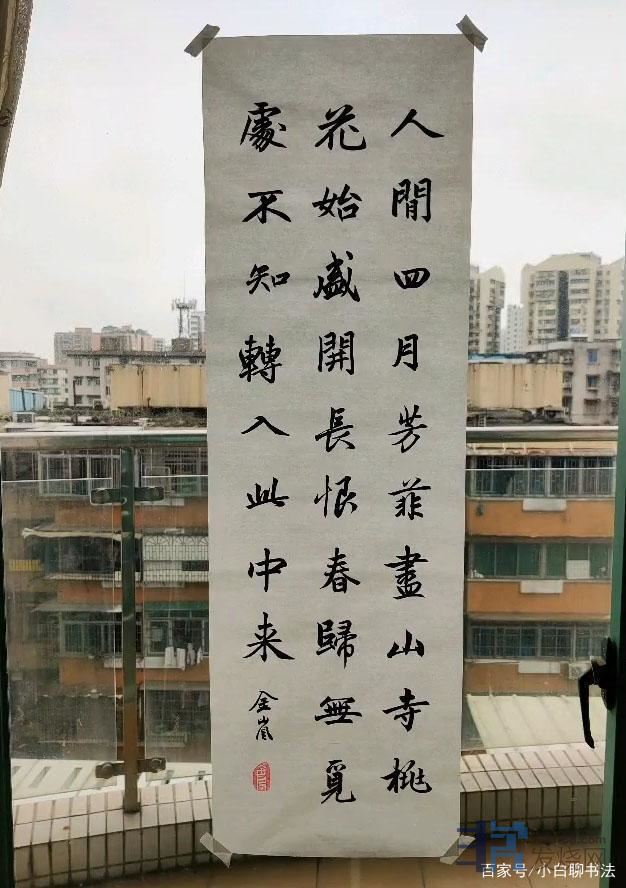 人間四月芳菲盡山寺桃
花始盛開長恨春歸無覓
處不知轉入此中来
金嵐
百家号/小白聊书法